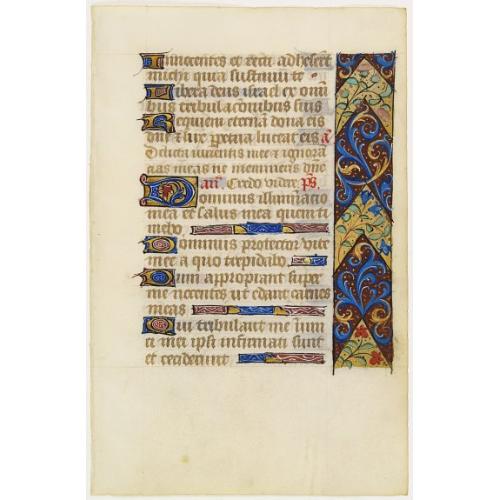 Innocentes et recti adheserūt
michi quia sustinui te
Libera deus israel ex omni
bus tribulacionibus suis
Requiem eternā dona eis
dne et lux perpetua luceat eis ā
Delicta iuventis mee et ignoran
cias meas ne memineris dne
an. Credo videre. ps.
Dominus illuminacio
mea et salus mea quem ti
mebo
Dominus protector vite
mee a quo trepidabo
Dum appropiant super
me nocentes ut edant carnes
meas
Qui tribulant me inimi
ci mei ipsi infirmati sunt
et ceciderunt